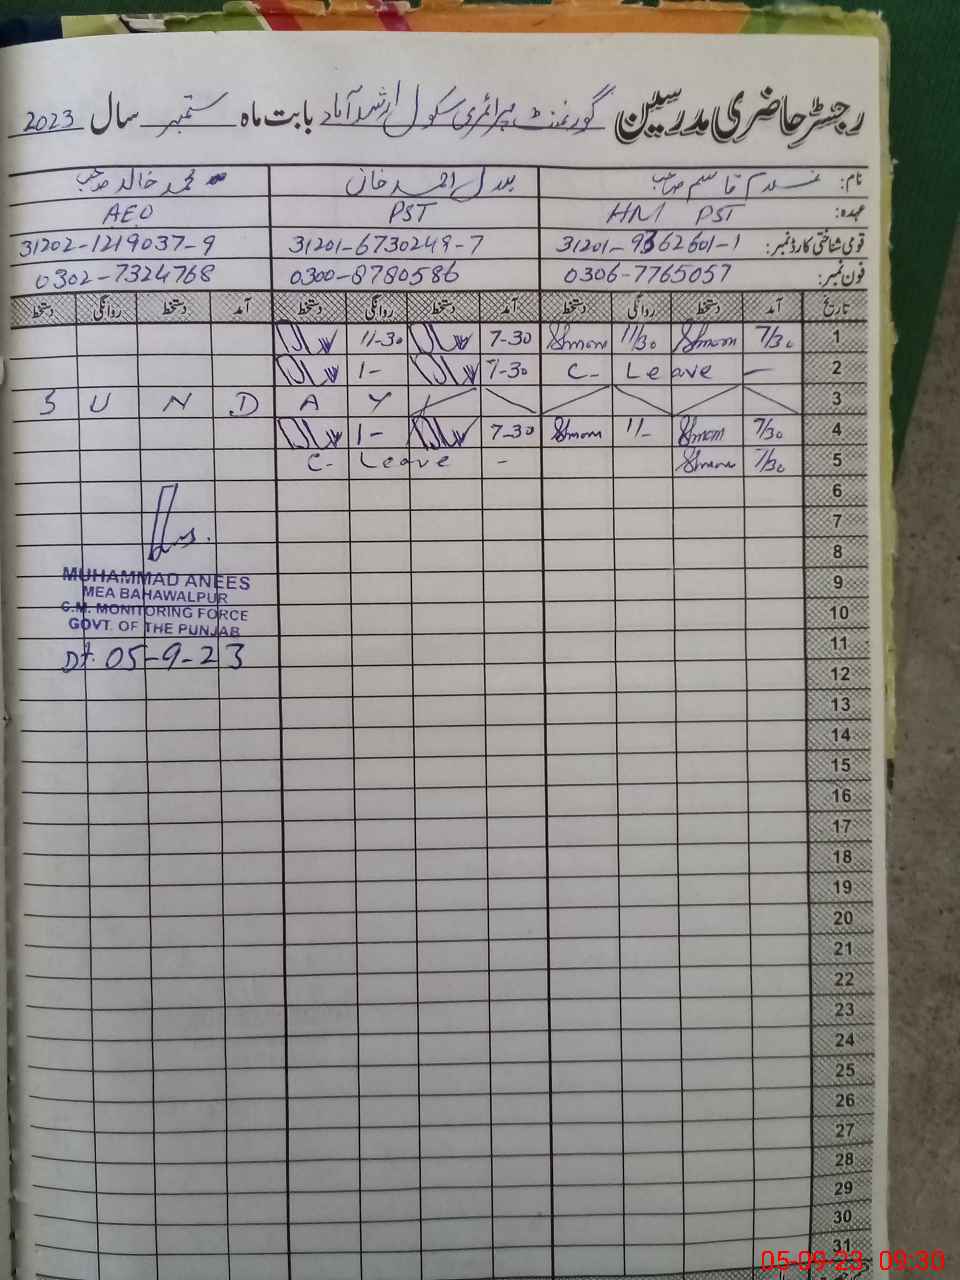 رجسٹر حاضری مدرسین گورنمنٹ پرائمری سکول ارشد آباد بابت ماہ ستمبر سال 2023
نام: غلام قاسم صاحب احمد خان محمد خالد صاحب
عہدہ: HM PST PST AEO
قومی شناختی کارڈ نمبر: 31201-9362601-1 31201-6730249-7 31202-1219037-9
فون نمبر: 0306-7765057 0300-8780586 0302-7324768
تاریخ آمد دستخط روانگی دستخط آمد دستخط روانگی دستخط آمد دستخط روانگی دستخط
1 7/30 11/30 7-30 11-30
2 C- Leave — 7-30 1-
3 SUNDAY
4 7/30 11/- 7-30 1-
5 7/30 C- Leave -
6
7
8
9
10
11
12
13
14
15
16
17
18
19
20
21
22
23
24
25
26
27
28
29
30
31
MUHAMMAD ANEES
MEA BAHAWALPUR
C.M. MONITORING FORCE
GOVT. OF THE PUNJAB
Dt. 05-9-23
05-09-23 09:30